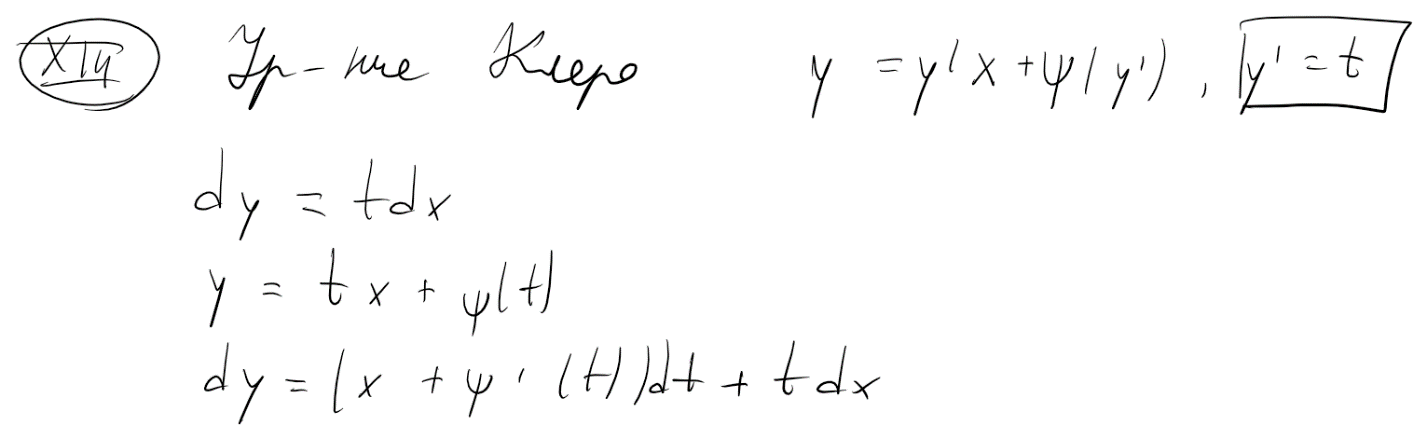 XIV Ур-ние Клеро y = y'x + ψ(y'), y' = t
dy = tdx
y = tx + ψ(t)
dy = (x + ψ'(t))dt + tdx